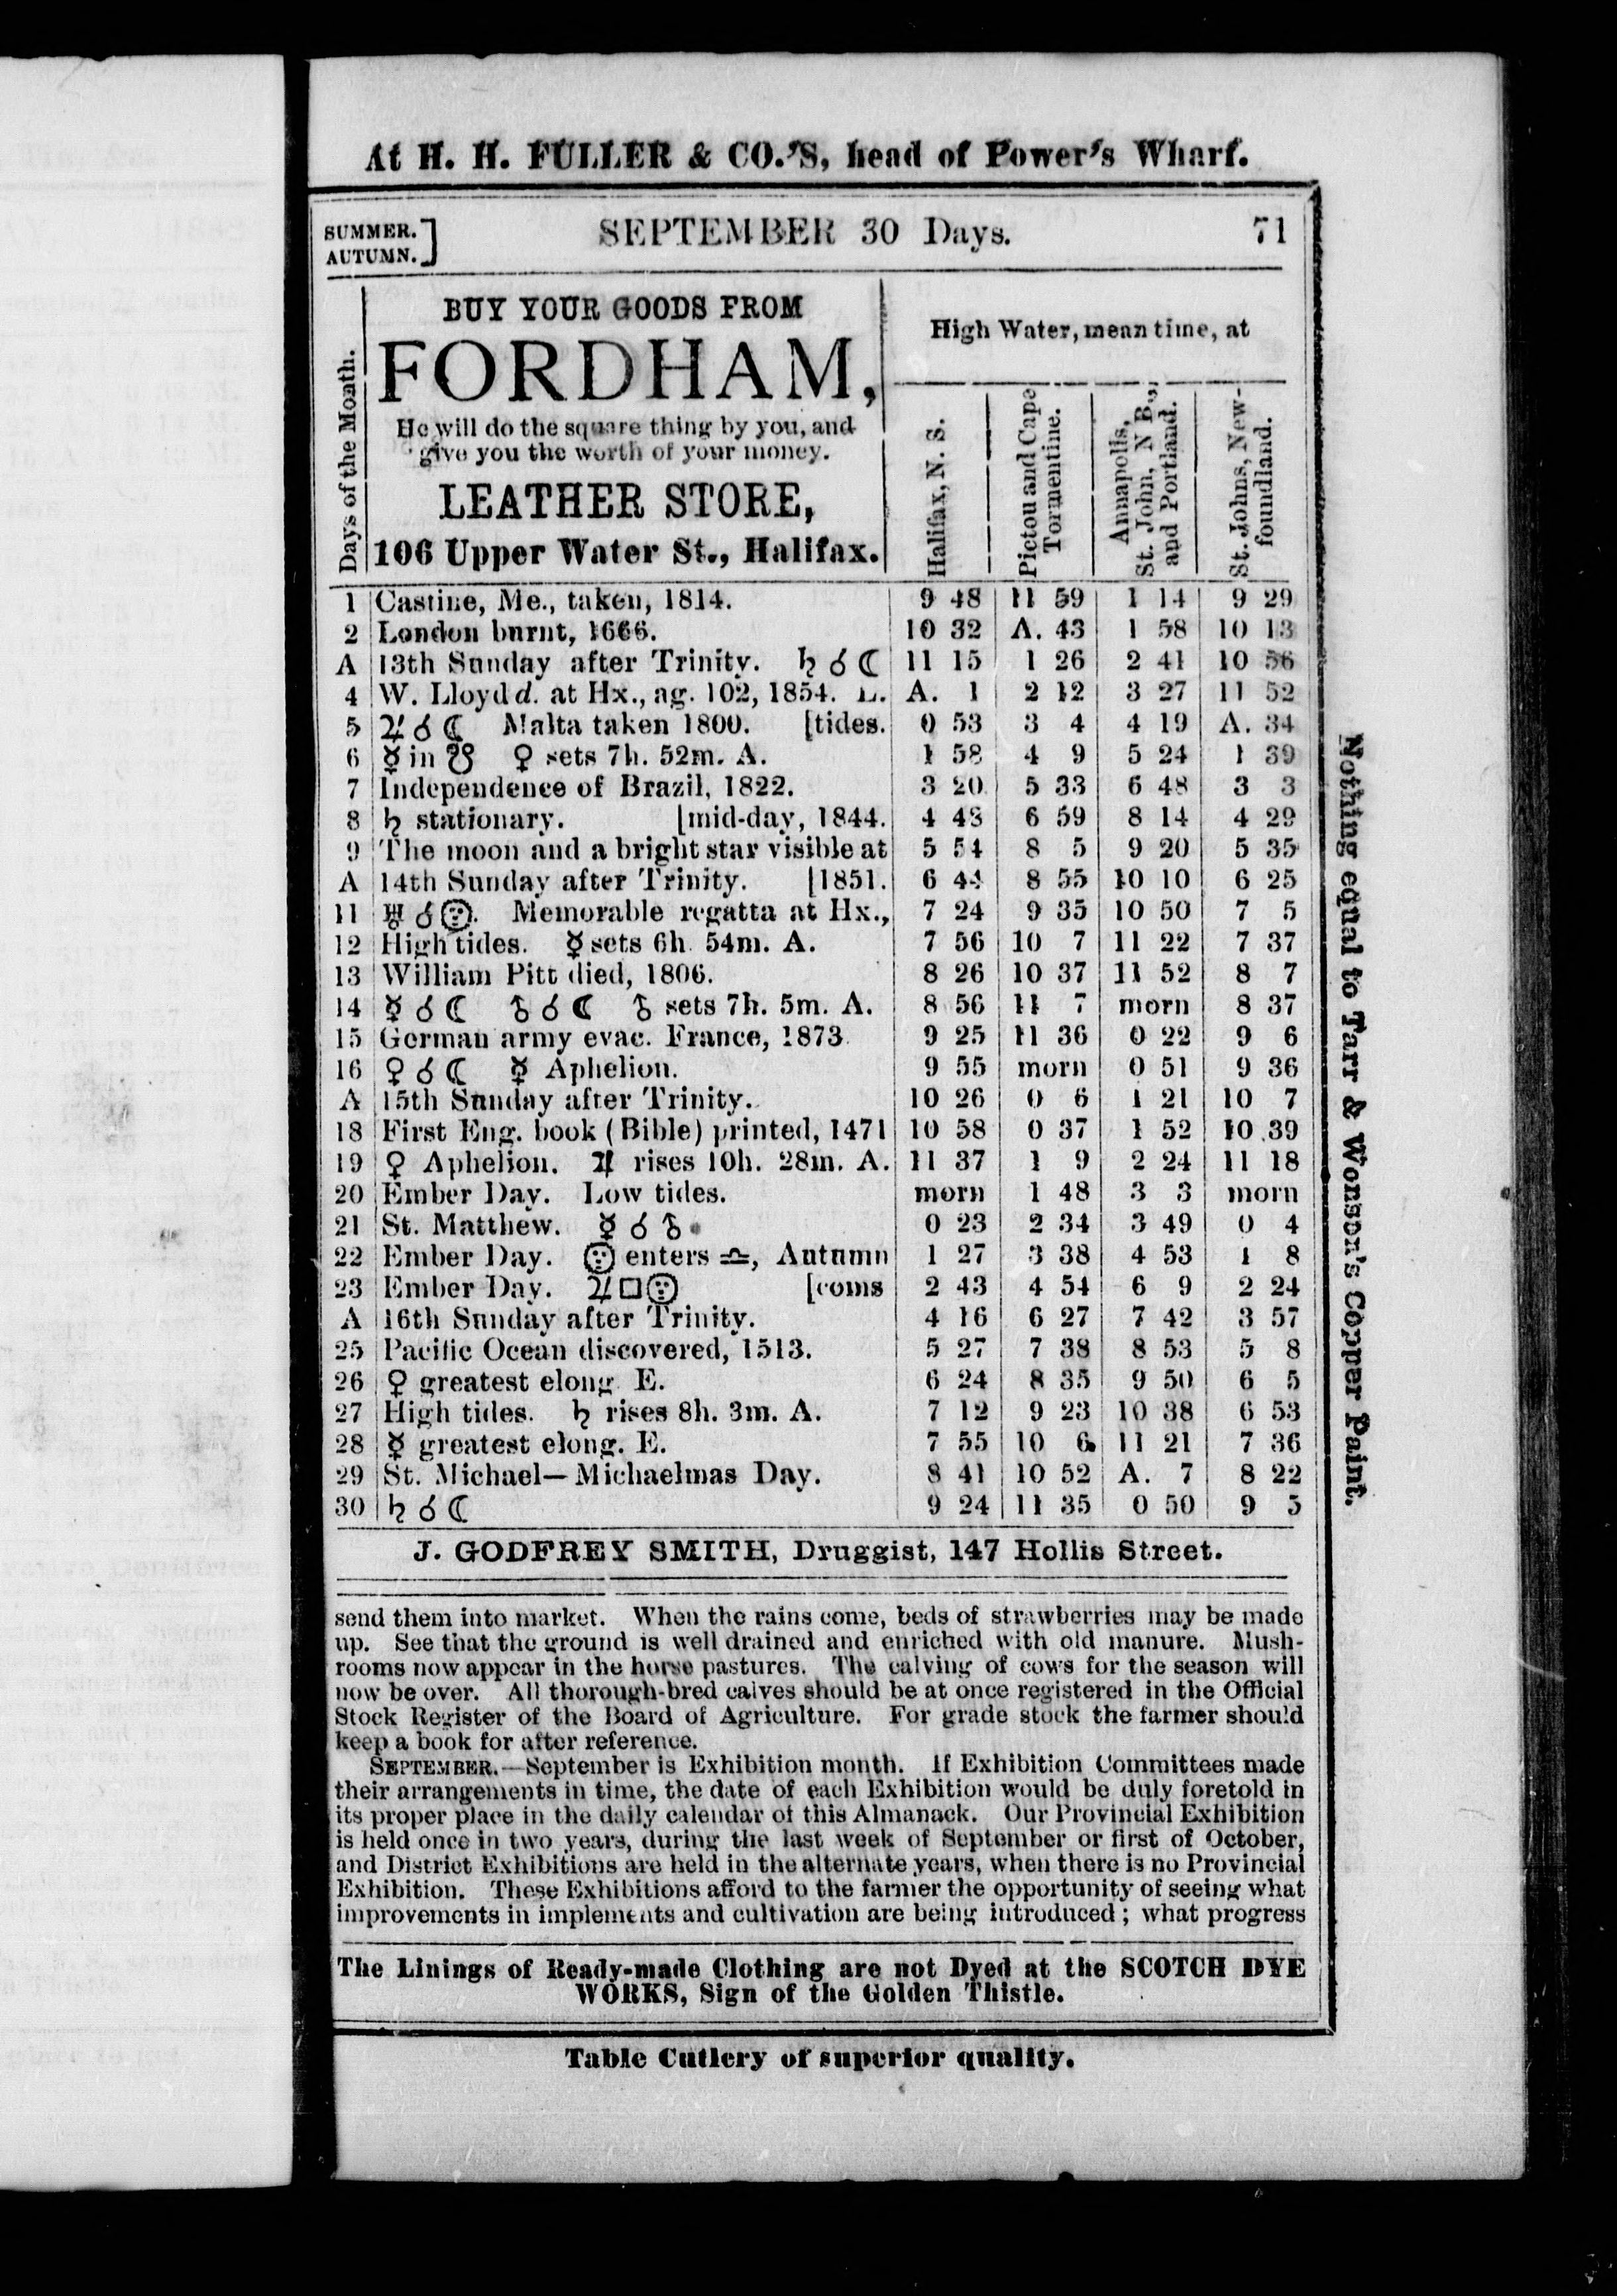 At H. H. FULLER & CO.'S, head of Power's Wharf.
SUMMER.
AUTUMN.]
SEPTEMBER 30 Days.
71
Days of the Month.
BUY YOUR GOODS FROM
FORDHAM,
He will do the square thing by you, and
give you the worth of your money.
LEATHER STORE,
106 Upper Water St., Halifax.
High Water, mean time, at
Halifax, N. S.
Pictou and Cape
Tormentine.
Annapolis,
St. John, N B.,
and Portland.
St. Johns, New-
foundland.
1 Castine, Me., taken, 1814. 9 48 11 59 1 14 9 29
2 London burnt, 1666. 10 32 A. 43 1 58 10 13
A 13th Sunday after Trinity. ♄ ☌ ☾ 11 15 1 26 2 41 10 56
4 W. Lloyd d. at Hx., ag. 102, 1854. L. A. 1 2 12 3 27 11 52
5 ♃ ☌ ☾ Malta taken 1800. [tides. 0 53 3 4 4 19 A. 34
6 ☿ in ☋ ♀ sets 7h. 52m. A. 1 58 4 9 5 24 1 39
7 Independence of Brazil, 1822. 3 20 5 33 6 48 3 3
8 ♄ stationary. [mid-day, 1844. 4 43 6 59 8 14 4 29
9 The moon and a bright star visible at 5 54 8 5 9 20 5 35
A 14th Sunday after Trinity. [1851. 6 44 8 55 10 10 6 25
11 ♅ ☌ ☉. Memorable regatta at Hx., 7 24 9 35 10 50 7 5
12 High tides. ☿ sets 6h 54m. A. 7 56 10 7 11 22 7 37
13 William Pitt died, 1806. 8 26 10 37 11 52 8 7
14 ☿ ☌ ☾ ♂ ☌ ☾ ♂ sets 7h. 5m. A. 8 56 11 7 morn 8 37
15 German army evac. France, 1873. 9 25 11 36 0 22 9 6
16 ♀ ☌ ☾ ☿ Aphelion. 9 55 morn 0 51 9 36
A 15th Sunday after Trinity. 10 26 0 6 1 21 10 7
18 First Eng. book (Bible) printed, 1471 10 58 0 37 1 52 10 39
19 ♀ Aphelion. ♃ rises 10h. 28m. A. 11 37 1 9 2 24 11 18
20 Ember Day. Low tides. morn 1 48 3 3 morn
21 St. Matthew. ☿ ☌ ♂ 0 23 2 34 3 49 0 4
22 Ember Day. ☉ enters ♎, Autumn 1 27 3 38 4 53 1 8
23 Ember Day. ♃ □ ☉ [coms 2 43 4 54 6 9 2 24
A 16th Sunday after Trinity. 4 16 6 27 7 42 3 57
25 Pacific Ocean discovered, 1513. 5 27 7 38 8 53 5 8
26 ♀ greatest elong. E. 6 24 8 35 9 50 6 5
27 High tides. ♄ rises 8h. 3m. A. 7 12 9 23 10 38 6 53
28 ☿ greatest elong. E. 7 55 10 6 11 21 7 36
29 St. Michael—Michaelmas Day. 8 41 10 52 A. 7 8 22
30 ♄ ☌ ☾ 9 24 11 35 0 50 9 5
J. GODFREY SMITH, Druggist, 147 Hollis Street.
send them into market. When the rains come, beds of strawberries may be made
up. See that the ground is well drained and enriched with old manure. Mush-
rooms now appear in the horse pastures. The calving of cows for the season will
now be over. All thorough-bred calves should be at once registered in the Official
Stock Register of the Board of Agriculture. For grade stock the farmer should
keep a book for after reference.
SEPTEMBER.—September is Exhibition month. If Exhibition Committees made
their arrangements in time, the date of each Exhibition would be duly foretold in
its proper place in the daily calendar of this Almanack. Our Provincial Exhibition
is held once in two years, during the last week of September or first of October,
and District Exhibitions are held in the alternate years, when there is no Provincial
Exhibition. These Exhibitions afford to the farmer the opportunity of seeing what
improvements in implements and cultivation are being introduced; what progress
The Linings of Ready-made Clothing are not Dyed at the SCOTCH DYE
WORKS, Sign of the Golden Thistle.
Table Cutlery of superior quality.
Nothing equal to Tarr & Wonson's Copper Paint.